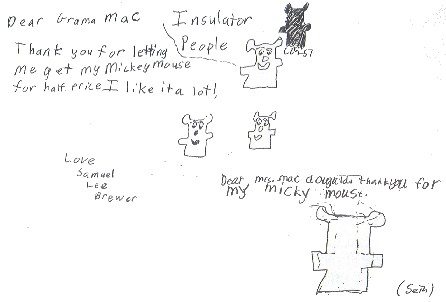 Dear Grama Mac
Insulator
People
Thank you for letting
me get my Mickey Mouse
for half price I like it a lot!
Love
Samuel
Lee
Brewer
Dear mrs. mac dougald thank you for
my micky mouse.
(Seth)